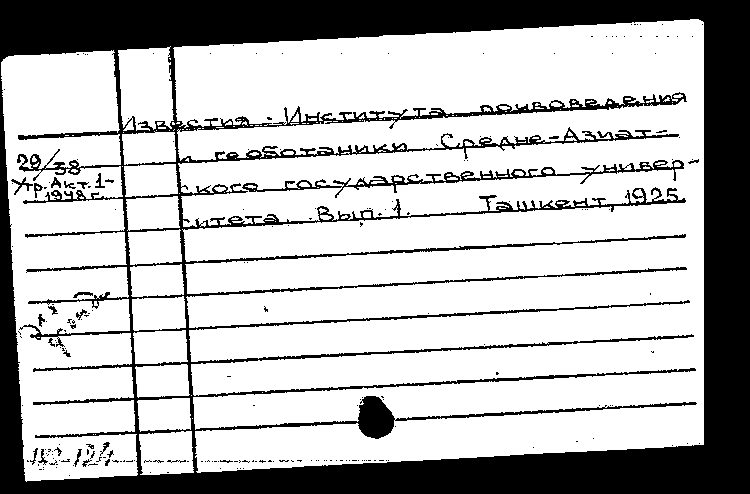 Известия Института почвоведения
и геоботаники Средне-Азиат-
ского государственного универ-
ситета. Вып. 1. Ташкент, 1925.
29/38
Утр. Акт. 1-
1948 г.